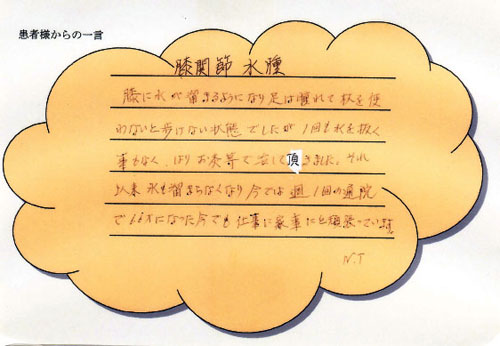 患者様からの一言
膝関節 水腫
膝に水が留まるようになり足は腫れて杖を使
わないと歩けない状態でしたが1回も水を抜く
事もなく、はり お灸等で治して頂きました。それ
以来 水も留まらなくなり 今では 週1回の通院
になった今でも 仕事に家事にと頑張っています
N.T